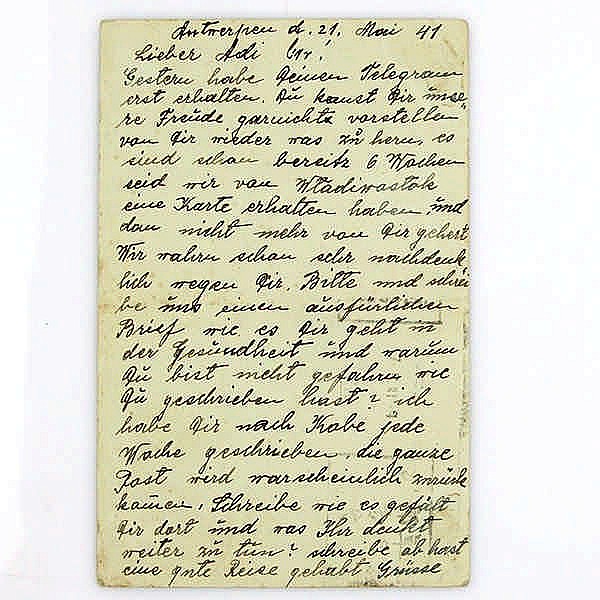 Antwerpen d. 21. Mai 41
Lieber Adi
Gestern habe Deinen Telegram
erst erhalten. Du kanst Dir unse-
re Freude garnichts vorstellen
von Dir wieder was zu hern, es
sind schon bereits 6 Wochen
seid wir von Wladiwostok
eine Karte erhalten haben und
dan nicht mehr von Dir gehert
Wir wahrn schon sehr nachdenk
lich wegen Dir. Bitte und schrei
be uns einen ausfürlichen
Brief wie es Dir geht in
der Gesundheit und warum
Du bist nicht gefahren wie
Du geschrieben hast? ich
habe Dir nach Kobe jede
Woche geschrieben, die ganze
Post wird warscheinlich zurück
komen. Schreibe wie es gefält
Dir dort und was Ihr denkt
weiter zu tun? schreibe ob hast
eine gute Reise gehabt Grüsse